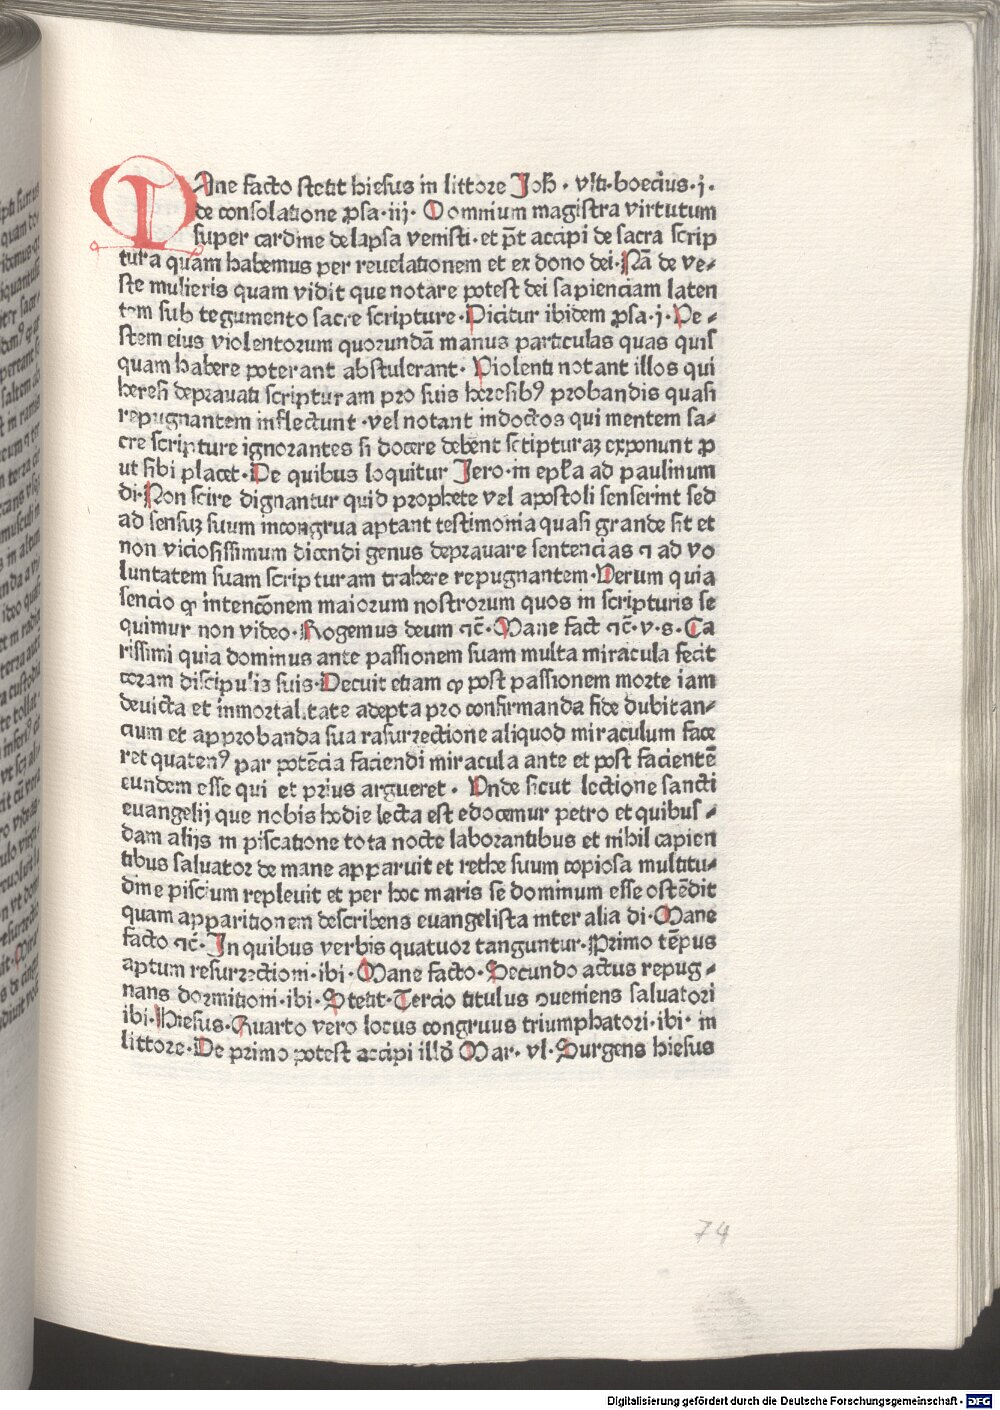 MAne facto stetit hiesus in littore Joh̄ · vlti · boecius · j ·
de consolatione ꝓsa · iij · O omnium magistra virtutum
super cardine delapsa venisti · et p̄t accipi de sacra scrip
tura quam habemus per reuelationem et ex dono dei · Nā de ve⸗
ste mulieris quam vidit que notare potest dei sapienciam laten
tem sub tegumento sacre scripture · Dicitur ibidem ꝓsa · j · Ve⸗
stem eius violentorum quorundā manus particulas quas quis
quam habere poterant abstulerant · Violenti notant illos qui
heresi deprauati scripturam pro suis heresibꝰ probandis quasi
repugnantem inflectunt · vel notant indoctos qui mentem sa⸗
cre scripture ignorantes si docere debent sctipturaꝫ exponunt ꝓ
ut sibi placet · De quibus loquitur Jero · in epl̄a ad paulinum
di · Non scire dignantur quid prophete vel apostoli senserint sed
ad sensuꝫ suum incongrua aptant testimonia quasi grande sit et
non viciosissimum dicendi genus deprauare sentencias ⁊ ad vo
luntatem suam scripturam trahere repugnantem · Verum quia
sencio ꝙ intencōnem maiorum nostrorum quos in scripturis se
quimur non video · Rogemus deum ⁊c̄ · Mane fact ⁊c̄ · v · s · Ca
rissimi quia dominus ante passionem suam multa miracula fecit
coram discipulis suis · Decuit etiam ꝙ post passionem morte iam
deuicta et inmortalitate adepta pro confirmanda fide dubitan⸗
cium et approbanda sua rasurrectione aliquod miraculum face
ret quatenꝰ par potēcia faciendi miracula ante et post facientē
eundem esse qui et prius argueret · Vnde sicut lectione sancti
euangelij que nobis hodie lecta est edocemur petro et quibus⸗
dam alijs in piscatione tota nocte laborantibus et nihil capien
tibus saluator de mane apparuit et rethe suum copiosa multitu⸗
dine piscium repleuit et per hoc maris se dominum esse ostēdit
quam apparitionem describens euangelista inter alia di · Mane
facto ⁊c̄ · In quibus verbis quatuor tanguntur · Primo tēpus
aptum resurrectioni · ibi · Mane facto · Secundo actus repug⸗
nans dormitioni · ibi · Stetit · Tercio titulus ꝯueniens saluatori
ibi · Hiesus · Quarto vero locus congruus triumphatori · ibi · in
littore · De primo potest accipi illd̄ Mar · vl · Surgens hiesus
74
Digitalisierung gefördert durch die Deutsche Forschungsgemeinschaft - DFG